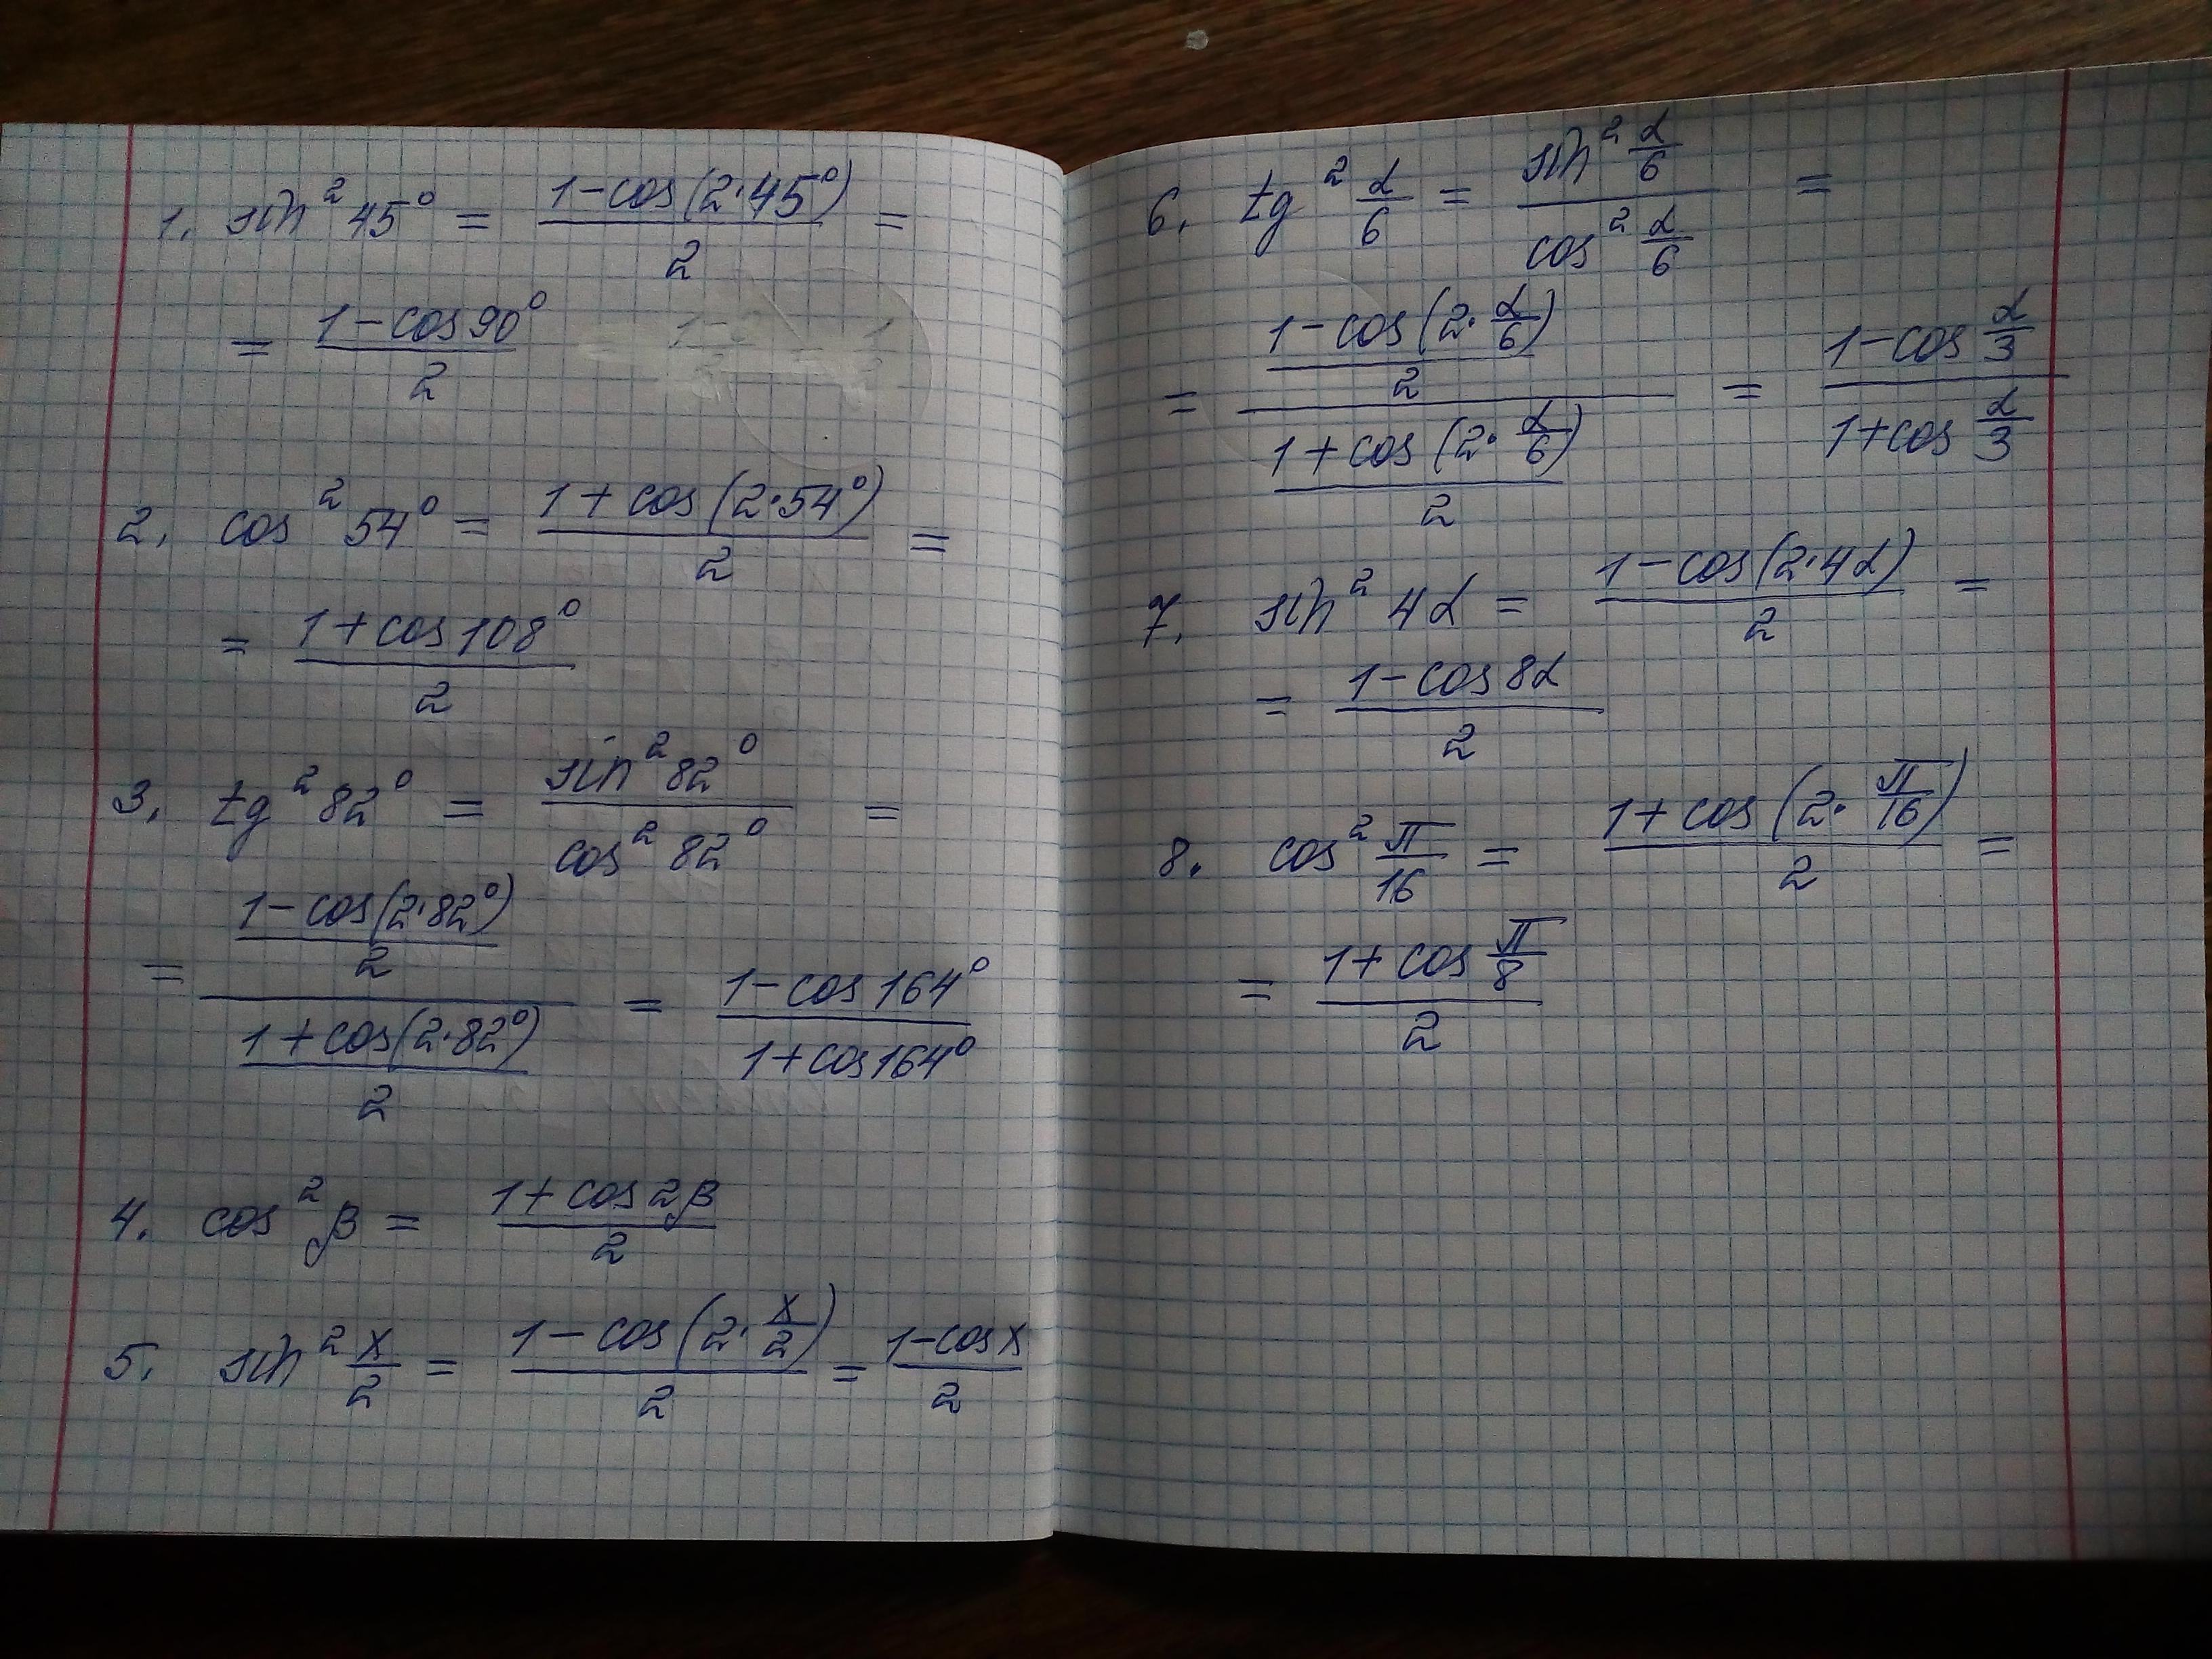 1. sin²45° = (1-cos(2·45°))/2 =
= (1-cos90°)/2
2. cos²54° = (1+cos(2·54°))/2 =
= (1+cos108°)/2
3. tg²82° = sin²82°/cos²82° =
= ((1-cos(2·82°))/2)/((1+cos(2·82°))/2) = (1-cos164°)/(1+cos164°)
4. cos²β = (1+cos2β)/2
5. sin²x/2 = (1-cos(2·x/2))/2 = (1-cosx)/2
6. tg²α/6 = (sin²α/6)/(cos²α/6) =
= ((1-cos(2·α/6))/2)/((1+cos(2·α/6))/2) = (1-cosα/3)/(1+cosα/3)
7. sin²4α = (1-cos(2·4α))/2 =
= (1-cos8α)/2
8. cos²π/16 = (1+cos(2·π/16))/2 =
= (1+cosπ/8)/2